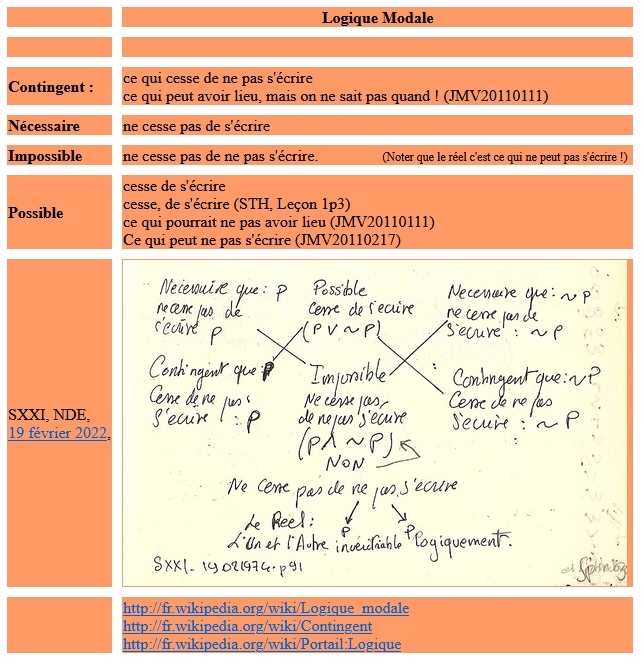 Logique Modale
Contingent :
ce qui cesse de ne pas s'écrire
ce qui peut avoir lieu, mais on ne sait pas quand ! (JMV20110111)
Nécessaire
ne cesse pas de s'écrire
Impossible
ne cesse pas de ne pas s'écrire. (Noter que le réel c'est ce qui ne peut pas s'écrire !)
Possible
cesse de s'écrire
cesse, de s'écrire (STH, Leçon 1p3)
ce qui pourrait ne pas avoir lieu (JMV20110111)
Ce qui peut ne pas s'écrire (JMV20110217)
SXXI, NDE,
19 février 2022,
Necessaire que : p
ne cesse pas de
s'écrire p
Possible
Cesse de s'ecrire
(p ∨ ~ p)
Necessaire que : ~ p
ne cesse pas de
s'ecrire : ~ p
Contingent que : p
Cesse de ne pas
s'écrire : p
Impossible
Ne cesse pas
de ne pas s'écrire
(p ∧ ~ p)
NON
Contingent que : ~ p
Cesse de ne pas
s'ecrire : ~ p
Ne Cesse pas de ne pas s'écrire
Le Réel :
p p
L'Un et l'Autre logiquement.
SXXI - 19021974. p91
http://fr.wikipedia.org/wiki/Logique_modale
http://fr.wikipedia.org/wiki/Contingent
http://fr.wikipedia.org/wiki/Portail:Logique